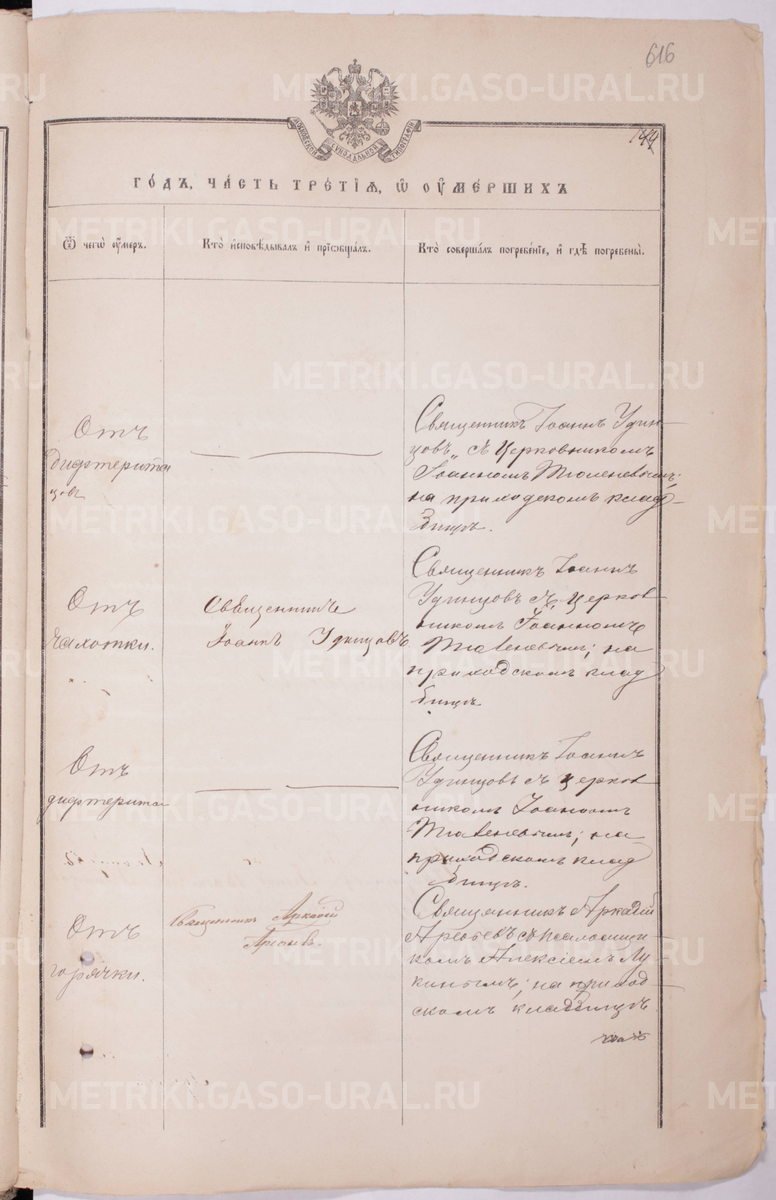 616
МОСКОВСКОЙ СѴНОДАЛЬНОЙ ТИПОГРАФІИ
ГОДЪ, ЧАСТЬ ТРЕТІѦ, Ѡ ОУМЕРШИХЪ
Ѿ чегѡ оумеръ.
Кто исповѣдывалъ и прїобщалъ.
Кто совершалъ погребенїе, и гдѣ погребены.
Отъ
дифтерита
Священникъ Іоаннъ Удин-
цовъ съ церковникомъ
Іоанномъ Тюленевымъ;
на приходскомъ клад-
бищѣ.
Отъ
чахотки.
Священникъ
Іоаннъ Удинцовъ
Священникъ Іоаннъ
Удинцовъ съ церков
никомъ Іоанномъ
Тюленевымъ; на
приходскомъ клад
бищѣ.
Отъ
дифтерита
Священникъ Іоаннъ
Удинцовъ съ церков
никомъ Іоанномъ
Тюленевымъ; на
приходскомъ клад
бищѣ.
Отъ
горячки.
Священникъ Аркадій
Священникъ Аркадій
съ псаломщи
комъ Алексіемъ Лу
кинымъ; на приход
скомъ кладбищѣ.
METRIKI.GASO-URAL.RU